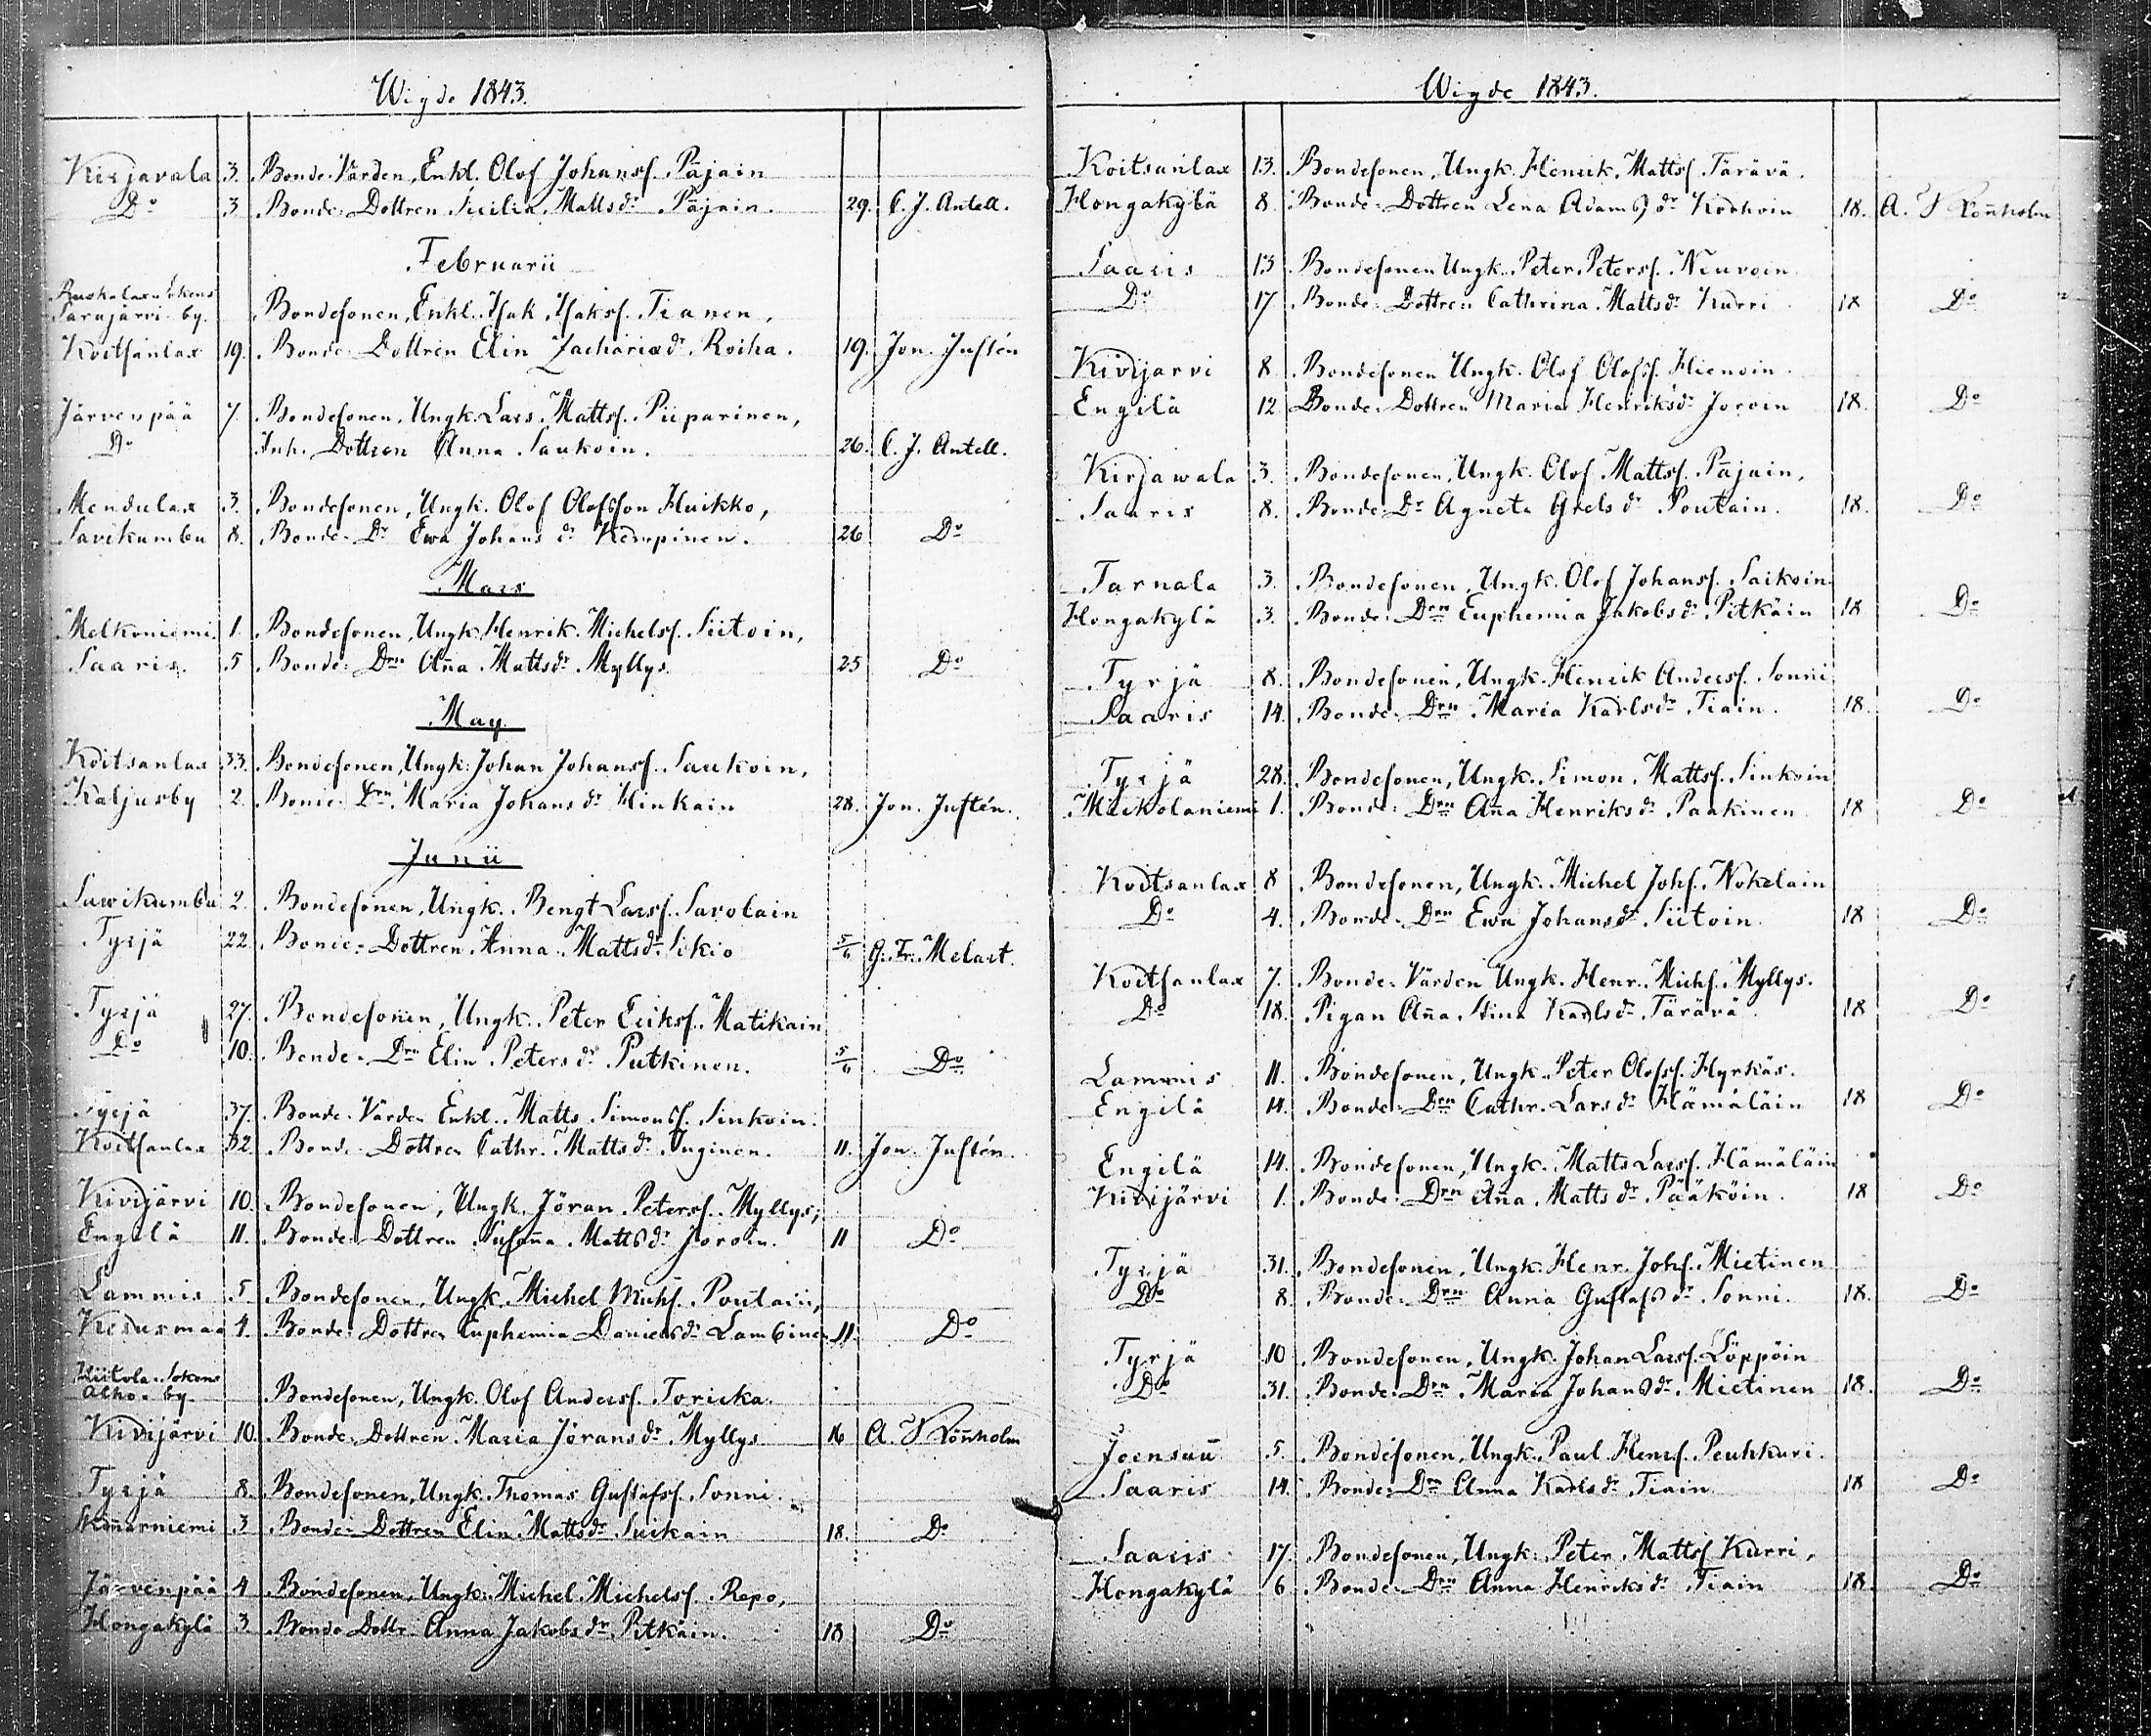 Wigde 1843.
Kirjavala 3. Bonde-Värden, Enkl. Olof Johanss. Päjain
Do 3 Bonde-Dottren Sicilia Mattsdr Päjain. 29. C. J. Antell.
Februarii
Ruokolax Sokens
Sarajärvi by. Bondesonen, Enkl. Isak Isakss. Tianen,
Koitsanlax 19. Bonde-Dottren Elin Zachariædr Roiha. 19. Jon. Juslén
Järvenpää 7. Bondesonen, Ungk. Lars Mattss. Piiparinen,
Do Inh. Dottren Anna Saukoin. 26. C. J. Antell.
Mendulax 3. Bondesonen, Ungk. Olof Olofsson Huikko,
Savikumbu 8. Bonde-Dr Ewa Johansdr Kempinen. 26 Do
Mars
Melkoniemi 1. Bondesonen, Ungk. Henrik Michelss. Siitoin,
Saaris. 5 Bonde-Drn Aña Mattsdr Myllys 25 Do
May
Koitsanlax 33. Bondesonen, Ungk. Johan Johanss. Saukoin,
Kaljusby 2. Bonde-Drn Maria Johansdr Hinkain 28. Jon. Juslén.
Junii
Sawikumbu 2. Bondesonen, Ungk. Bengt Larss. Savolain
Tyrjä 22. Bonde-Dottren Anna Mattsdr Sikiö 5/6 G. Fr. Melart.
Tyrjä 27. Bondesonen, Ungk. Peter Erikss. Matikain
Do 10. Bonde-Drn Elin Petersdr Putkinen. 5/6 Do
Tyrjä 37. Bonde-Värden Enkl. Matts Simonss. Sinkoin.
Koitsanlax 32. Bonde-Dottren Cathr. Mattsdr Inginen. 11. Jon. Juslén.
Kivijärvi 10. Bondesonen, Ungk. Jöran Peterss. Myllys,
Engilä 11. Bonde-Dottren Susaña Mattsdr Joroin. 11 Do
Lammis 5. Bondesonen, Ungk. Michel Michs. Poutain,
Kesusmaa 4. Bonde-Dottren Euphemia Danielsdr Lambinen 11. Do
Hiitola Sokens
Alho by. Bondesonen, Ungk. Olof Anderss. Toricka.
Kivijärvi 10. Bonde-Dottren Maria Jöransdr Myllys 16 A. S Löñholm
Tyrjä 8. Bondesonen, Ungk. Thomas Gustafss. Sonni.
Kiñarniemi 3 Bonde-Dottren Elin Mattsdr Suikain 18. Do
Järvenpää 4 Bondesonen, Ungk. Michel Michelss. Repo,
Hongakylä 3 Bonde Dottr. Anna Jakobsdr Pitkäin. 18 Do
Wigde 1843.
Koitsanlax 13. Bondesonen, Ungk. Henrik Mattss. Tärävä.
Hongakylä 8 Bonde-Dottren Lena Adamsdr Korhoin 18. A. S Löñholm
Saaris 13 Bondesonen Ungk. Peter Peterss. Neuvoin
Do 17 Bonde-Dottren Cathrina Mattsdr Kurri 18 Do
Kivijärvi 8 Bondesonen Ungk. Olof Olofss. Hienoin.
Engilä 12 Bonde-Dottren Maria Henriksdr Joroin 18. Do
Kirjawala 3. Bondesonen, Ungk. Olof Mattss. Päjain,
Saaris 8. Bonde-Dr Agneta Grelsdr Poutain. 18. Do
Tarnala 3. Bondesonen, Ungk. Olof Johanss. Saikoin
Hongakylä 3. Bonde-Drn Euphemia Jakobsdr Pitkäin 18 Do
Tyrjä 8. Bondesonen, Ungk. Henrik Anderss. Sonni
Saaris 14. Bonde-Drn Maria Karlsdr Tiain. 18. Do
Tyrjä 28. Bondesonen, Ungk. Simon Mattss. Sinkoin
Mickolaniemi 1. Bonde-Drn Aña Henriksdr Paakinen. 18 Do
Koitsanlax 8 Bondesonen, Ungk. Michel Johs. Nokelain
Do 4. Bonde-Drn Ewa Johansdr Siitoin. 18 Do
Koitsanlax 7. Bonde-Värden Ungk. Henr. Michs. Myllys.
Do 18. Pigan Aña Stina Karlsdr Tärävä. 18 Do
Lammis 11. Bondesonen, Ungk. Peter Olofss. Hyrkäs.
Engilä 14. Bonde-Drn Cathr. Larsdr Hämäläin 18 Do
Engilä 14. Bondesonen, Ungk. Matts Larss. Hämäläin
Kivijärvi 1. Bonde-Drn Aña Mattsdr Pääköin. 18 Do
Tyrjä 31. Bondesonen, Ungk. Henr. Johs. Mietinen
Do 8. Bonde-Drn Anna Gustafsdr Sonni. 18. Do
Tyrjä 10 Bondesonen, Ungk. Johan Larss. Löppöin
Do 31. Bonde-Drn Maria Johansdr Mietinen 18. Do
Joensuu 5. Bondesonen, Ungk. Paul Henrs. Peuhkuri.
Saaris 14. Bonde-Drn Anna Karlsdr Tiain 18 Do
Saaris 17. Bondesonen, Ungk. Peter Mattss Kurri,
Hongakylä 6 Bonde-Drn Anna Henriksdr Tiain 18 Do